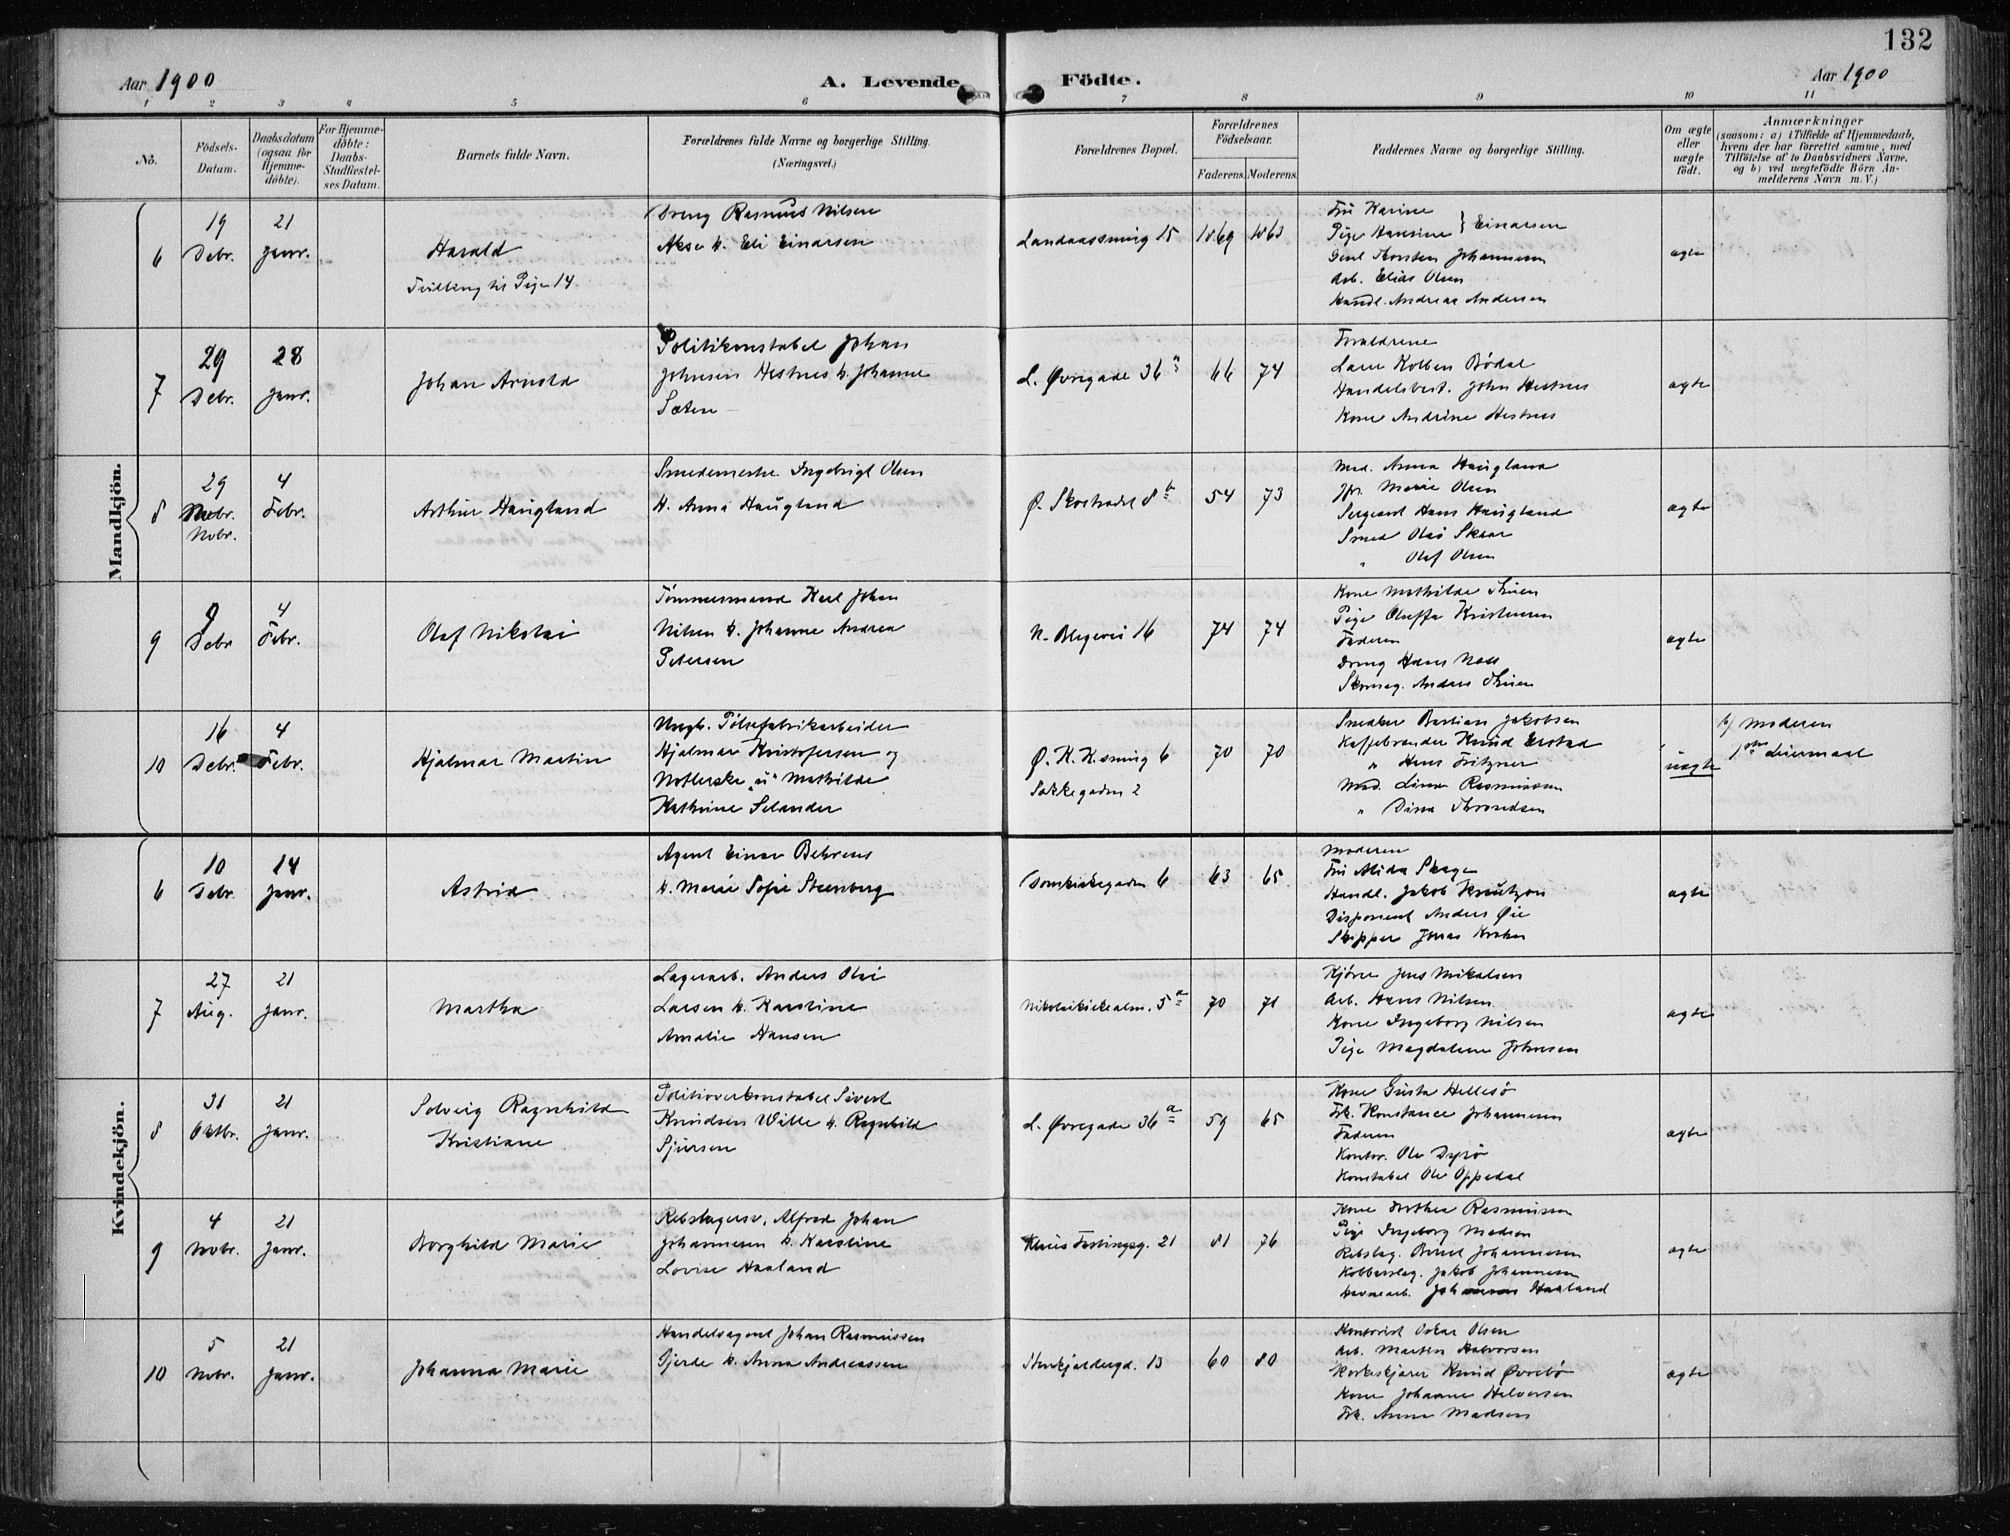 132
Aar 1900
A. Levende
Födte.
Aar 1900
1 2 3 4 5 6 7 8 9 10 11
No.
Födsels-Datum.
Daabsdatum (ogsaa for Hjemme-döbte).
For Hjemme-döbte: Daabs-Stadfæstel-ses Datum.
Barnets fulde Navn.
Forældrenes fulde Navne og borgerlige Stilling.
(Næringsvei.)
Forældrenes Bopæl.
Forældrenes Födselsaar.
Faderens.
Moderens.
Faddernes Navne og borgerlige Stilling.
Om ægte eller uægte födt.
Anmærkninger
(saasom: a) i Tilfælde af Hjemmedaab,
hvem der har forrettet samme, med
Tilföielse af to Daabsvidners Navne,
og b) ved uægtefödte Börn An-
melderens Navn m. V.)
Mandkjön.
6
19 Debr.
21 Janr.
Harald
Tvilling til Pige 14
Dreng Rasmus Nilsen
Aksø h. Eli Einarsen
Landaassmug 15
1869
1863
Fru Karine
Pige Hansine } Einarsen
Gml Torsten Johannesen
Arb. Elias Olsen
Handl. Andreas Andersen
ægte
7
29 Debr.
28 Janr.
Johan Arnold
Politikonstabel Johan
Johnsen Hestnes h. Johanne
Sæten
L. Øvregade 36 a
66
74
Forældrene
Lærer Kolben Bødal
Handelsbest. John Hestnes
Kone Andrine Hestnes
ægte
8
29 Nobr.
4 Febr.
Arthur Haugland
Smedemester Ingebrigt Olsen
h. Anna Haugland
Ø. Skostrædet 8 b
54
73
Mad. Anna Haugland
Jfr. Marie Olsen
Sergeant Hans Haugland
Smed Olai Skaar
" Olaf Olsen
ægte
9
9 Debr
4 Febr.
Olaf Nikolai
Tømmermand Karl Johan
Nilsen h. Johanne Andrea
Petersen
N. Blegevei 16
74
74
Kone Mathilde Thuen
Pige Oleffa Kristensen
Faderen
Dreng Hans Næss
Skomag. Anders Thuen
ægte
10
16 Debr.
4 Febr.
Hjalmar Martin
Ungk. Pølsefabrikarbeider
Hjalmar Kristofersen og
Notterske "u" Mathilde
Kathrine Selander
Ø. K. K.smug 6
Sækkegaden 2
70
70
Snedker Bastian Jakobsen
Kaffebrænder Knud Erstad
" Hans Fritzner
Mad. Lina Rasmussen
" Dina Throndsen
uægte
b) Moderen
1ste Leiermaal
Kvindekjön.
6
10 Debr.
14 Janr.
Astrid
Agent Einar Behrens
h. Marie Sofie Steenberg
Domkirkegaden 6
63
65
Moderen
Fru Alida Skage
Handl. Jakob Kreutzon
Disponent Anders Øie
Skipper Jonas Krohn
ægte
7
27 Aug.
21 Janr.
Martha
Lagerarb. Anders Olai
Larsen h. Karoline
Amalie Hansen
Nikolaikirkealm. 5 a
70
71
Kjører Jens Mikalsen
Arb. Hans Nilsen
Kone Ingeborg Nilsen
Pige Magdalene Johnsen
ægte
8
31 Oktbr.
21 Janr.
Solveig Ragnhild
Kristiane
Politioverkonstabel Sivert
Knudsen Wille h. Ragnhild
Sjursen
L. Øvregade 36 a
59
65
Kone Gusta Hellesø
Frk. Konstance Johannesen
Faderen
Kontor. Ole Dyrø
Konstabel Ole Oppedal
ægte
9
4 Nobr.
21 Janr.
Borghild Marie
Rebslagersv. Alfred Johan
Johannesen h. Karoline
Lovise Haaland
Klaus Fastingsg. 21
81
76
Kone Dorthea Rasmussen
Pige Ingeborg Madsen
Rebslag. Bernt Johannesen
Kobberslag. Jakob Johannesen
Havnearb. Johannes Haaland
ægte
10
5 Nobr.
21 Janr.
Johanna Marie
Handelsagent Johan Rasmussen
Gjerde h. Anna Andreassen
Stenkjeldergd. 13
60
80
Kontorist Oskar Olsen
Arb. Martin Halvorsen
Kirkekjører Knud Øvrebø
Kone Johanne Halvorsen
Frk. Anna Madsen
ægte